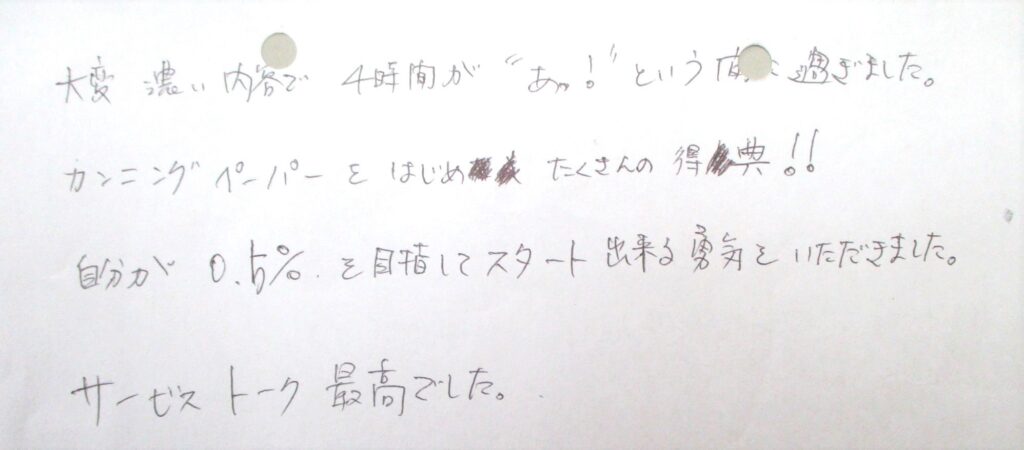 大変 濃い内容で 4時間が “あっ!” という間に 過ぎました。
カンニングペーパーをはじめ たくさんの 得典!!
自分が 0.5%を目指してスタート出来る勇気をいただきました。
サービストーク 最高でした。